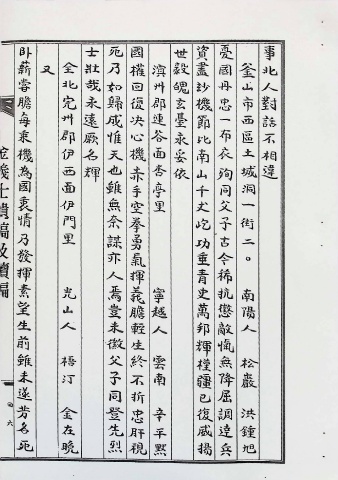 事北人對話不相違
釜山市西區土城洞一街二。 南陽人 松巖 洪鍾旭
憂國丹忠一布衣殉同父子古今稀抗懲敵愾無降屈調達兵
資盡妙機節比南山千丈屹功垂青史萬邦輝檀疆已復威揚
世毅魄玄臺永妥依
濱州郡連谷面杏亭里 寧越人 雲南 辛平默
國權回復決心機赤手空拳勇氣揮義膽輕生終不折忠肝視
死乃如歸成惟天也雖無奈謀亦人焉豈未徽父子同登先烈
士壯哉永遠厥名輝
又
全北完州郡伊西面伊門里 光山人 梧汀 金在晩
臥薪嘗膽每乘機為國衷情乃發揮素望生前雖未遂芳名死
義士遺稿收續編